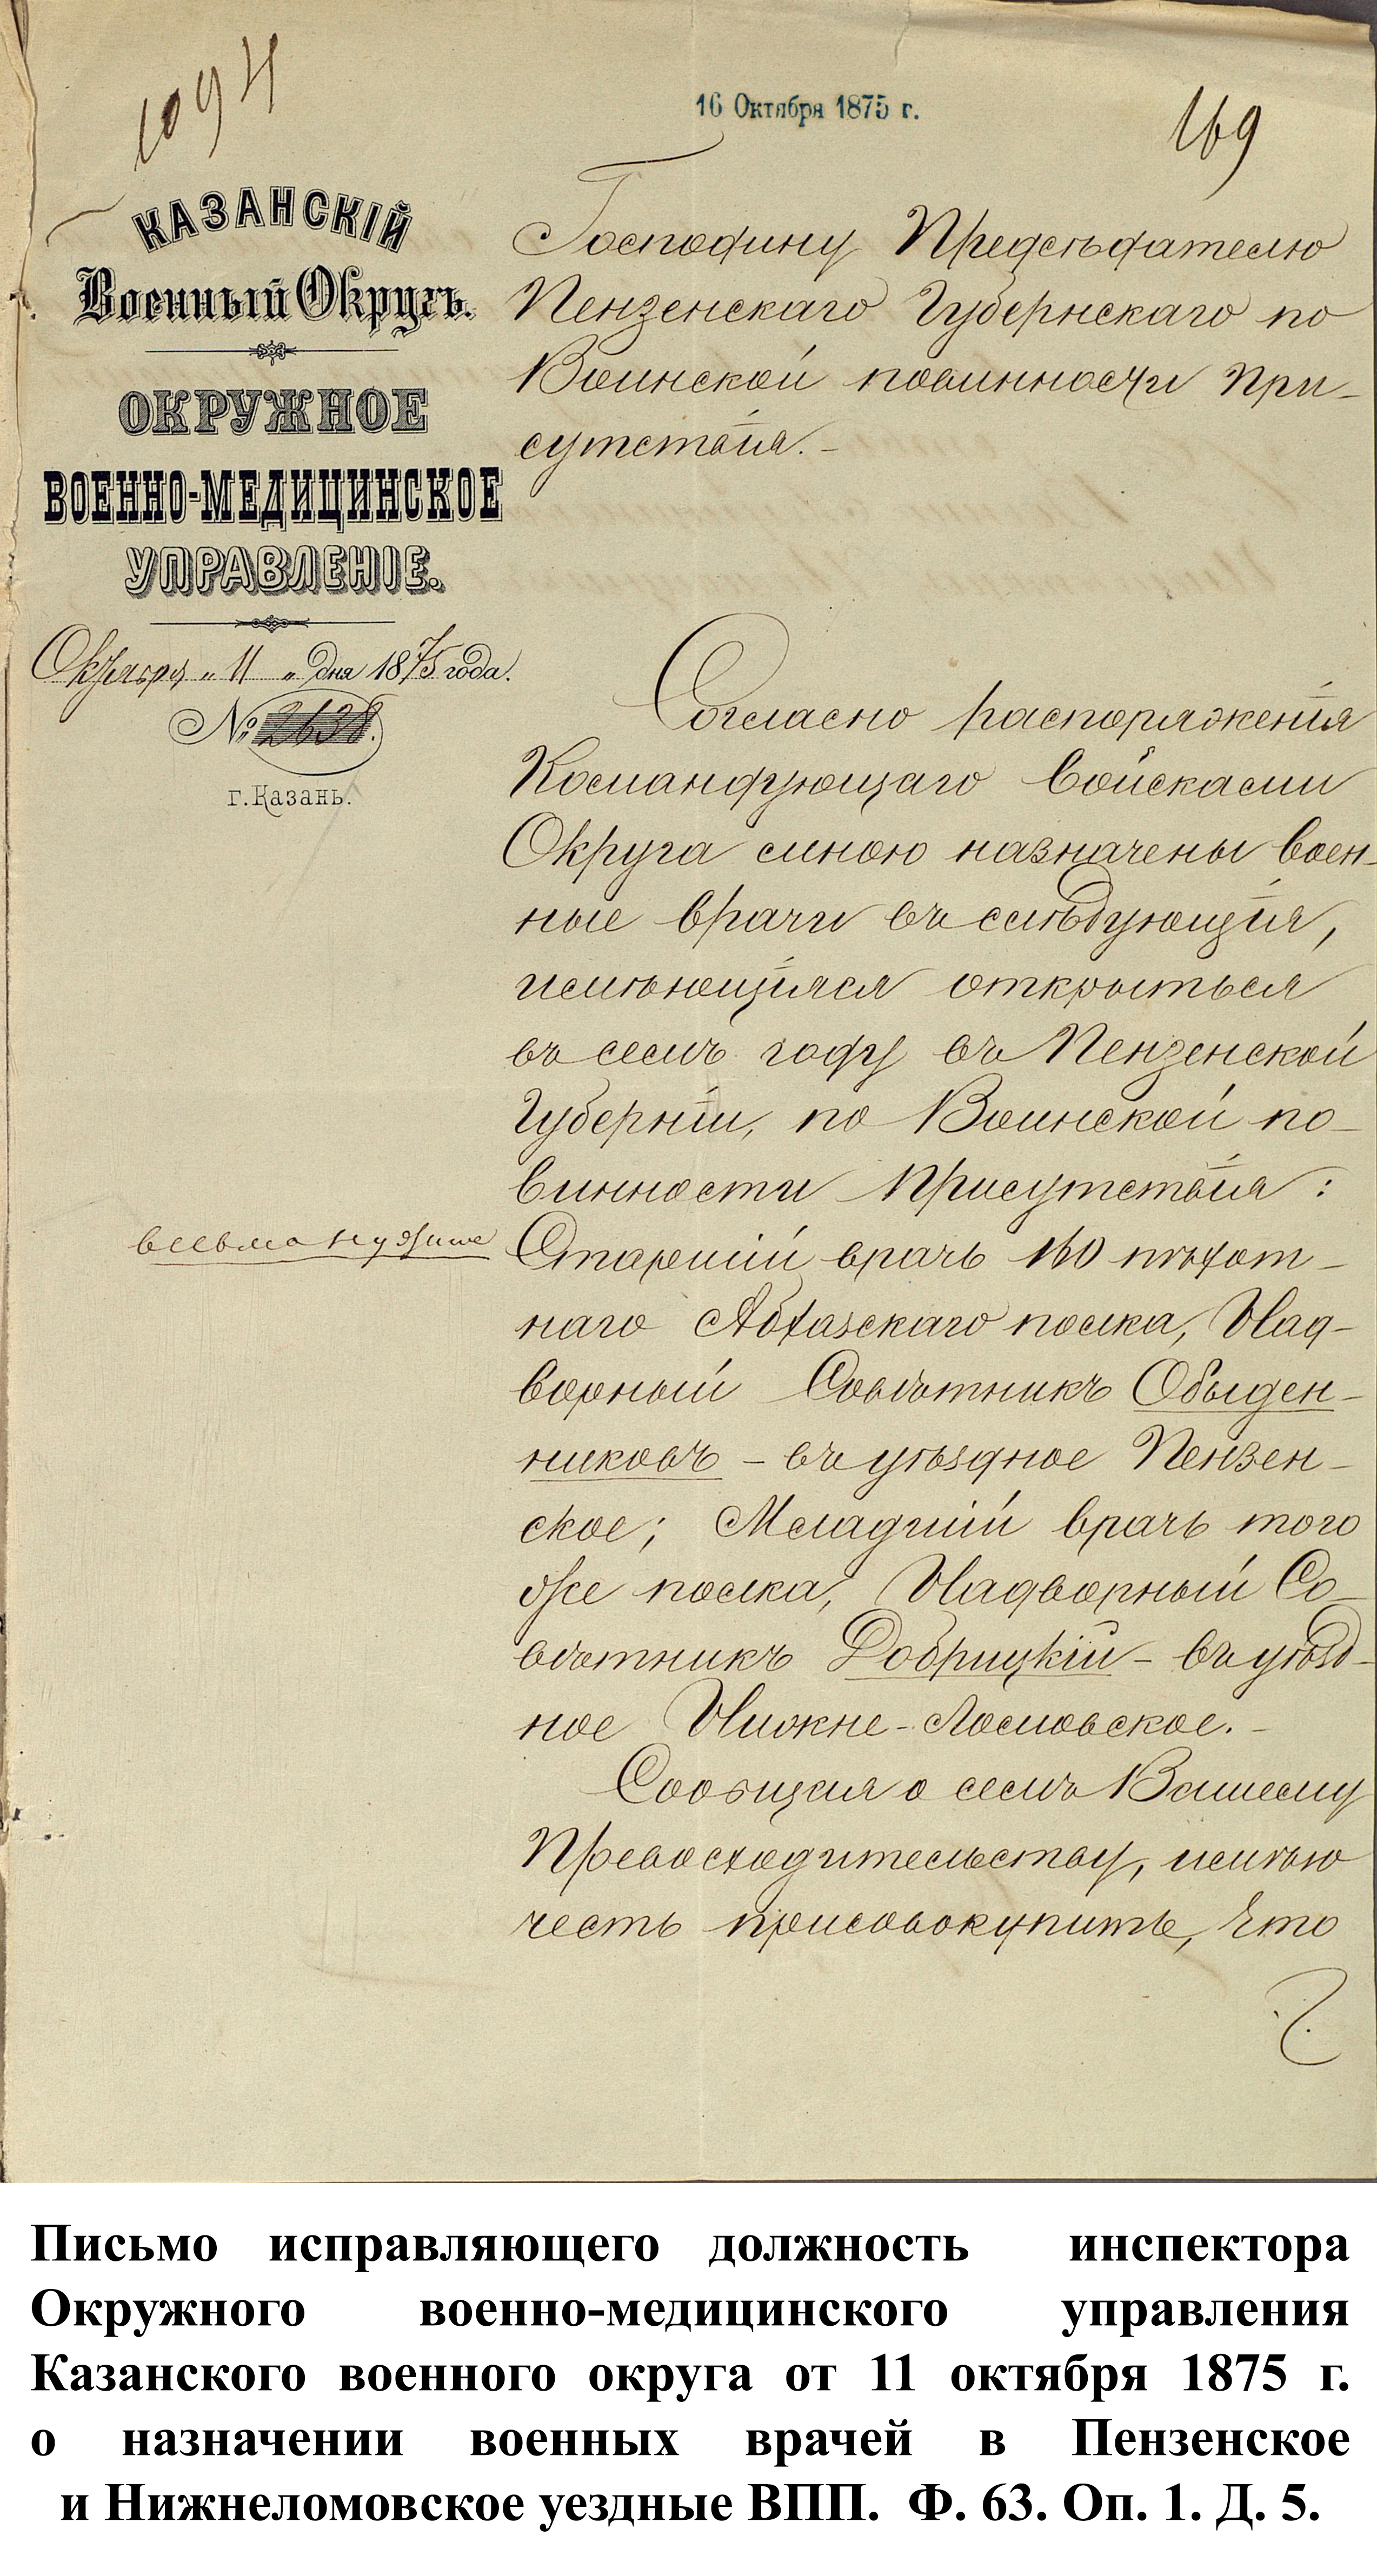 1094
16 Октября 1875 г.
169
КАЗАНСКІЙ
Военный Округъ.
ОКРУЖНОЕ
ВОЕННО-МЕДИЦИНСКОЕ
УПРАВЛЕНІЕ.
Октября „ 11 „ дня 1875 года.
№ 2638.
г. Казань.
Господину Предсѣдателю
Пензенскаго Губернскаго по
Воинской повинности При-
сутствія. –
Согласно распоряженія
Командующаго войсками
Округа мною назначены воен-
ные врачи въ слѣдующія,
имѣющіяся открыться
въ семъ году въ Пензенской
Губерніи, по Воинской по-
винности Присутствія:
весьма нужное
Старшій врачъ 160 пѣхот-
наго Абхазскаго полка, Над-
ворный Совѣтникъ Обыден-
никовъ – въ уѣздное Пензен-
ское; Младшій врачъ того
же полка, Надворный Со-
вѣтникъ Добрицкій – въ уѣзд-
ное Нижне-Ломовское. –
Сообщая о семъ Вашему
Превосходительству, имѣю
честь присовокупить, что
Письмо исправляющего должность инспектора
Окружного военно-медицинского управления
Казанского военного округа от 11 октября 1875 г.
о назначении военных врачей в Пензенское
и Нижнеломовское уездные ВПП. Ф. 63. Оп. 1. Д. 5.